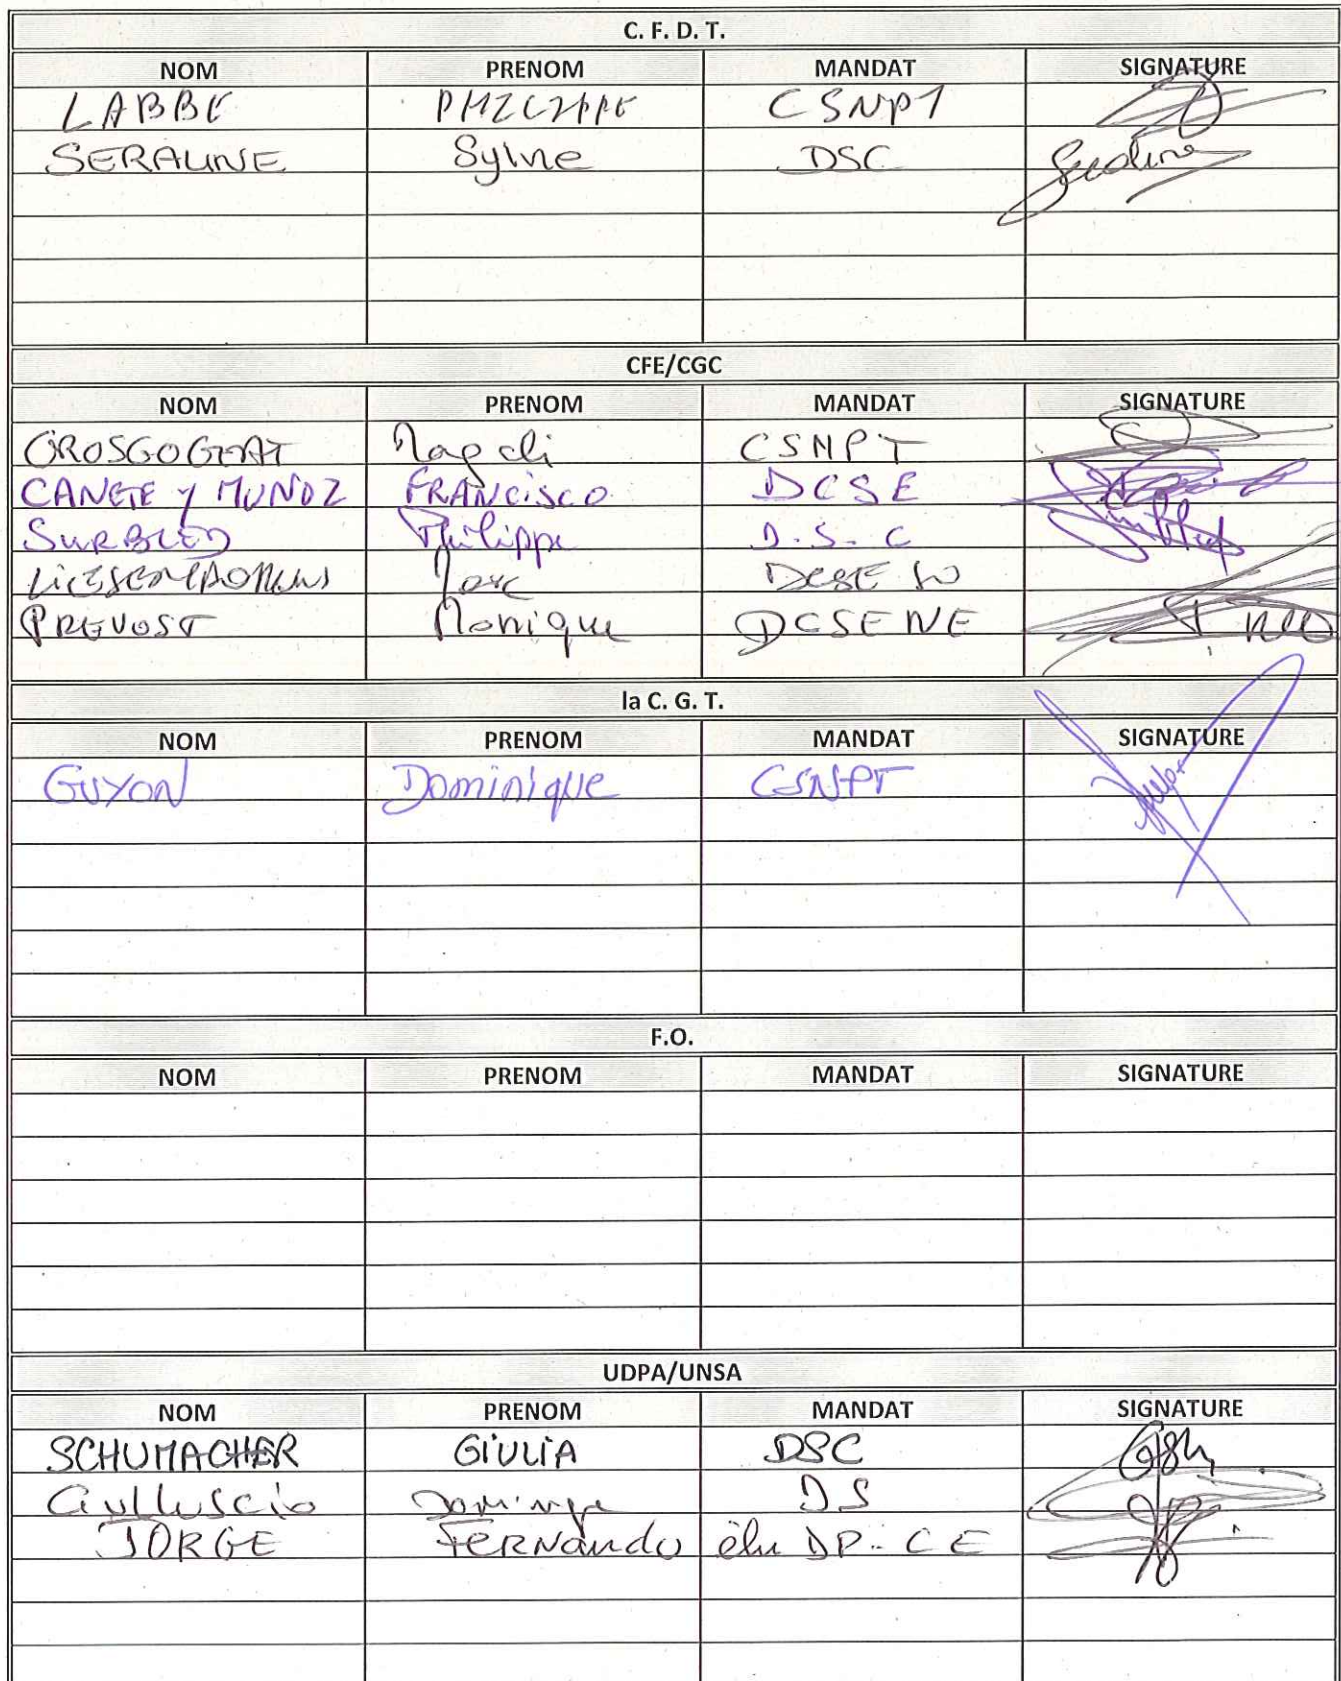 C. F. D. T.
NOM PRENOM MANDAT SIGNATURE
LABBE CSNPT
SERALINE Sylvie DSC
CFE/CGC
NOM PRENOM MANDAT SIGNATURE
GROSGOGEAT Magali CSNPT
CANETE Y MUNOZ FRANCISCO DCSE
SURBLED Philippe D.S.C
Marc DCSE SO
PREVOST Monique DCSE NE
la C. G. T.
NOM PRENOM MANDAT SIGNATURE
GUYON Dominique CSNPT
F.O.
NOM PRENOM MANDAT SIGNATURE
UDPA/UNSA
NOM PRENOM MANDAT SIGNATURE
SCHUMACHER GIULIA DSC
Gulluscio DS
JORGE FERNando élu DP-CE